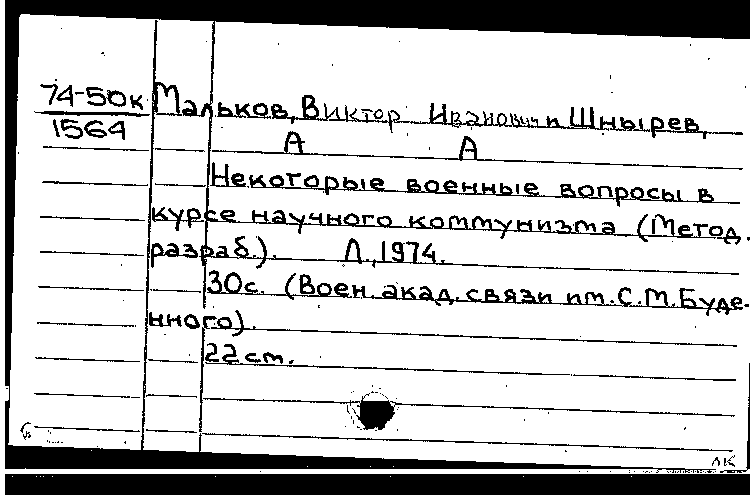 74-50к Мальков, Виктор Иванович и Шнырев,
1564
А А
Некоторые военные вопросы в
курсе научного коммунизма (Метод.
разраб.). Л., 1974.
30с. (Воен. акад. связи им. С.М. Буде-
нного).
22 см.
лк